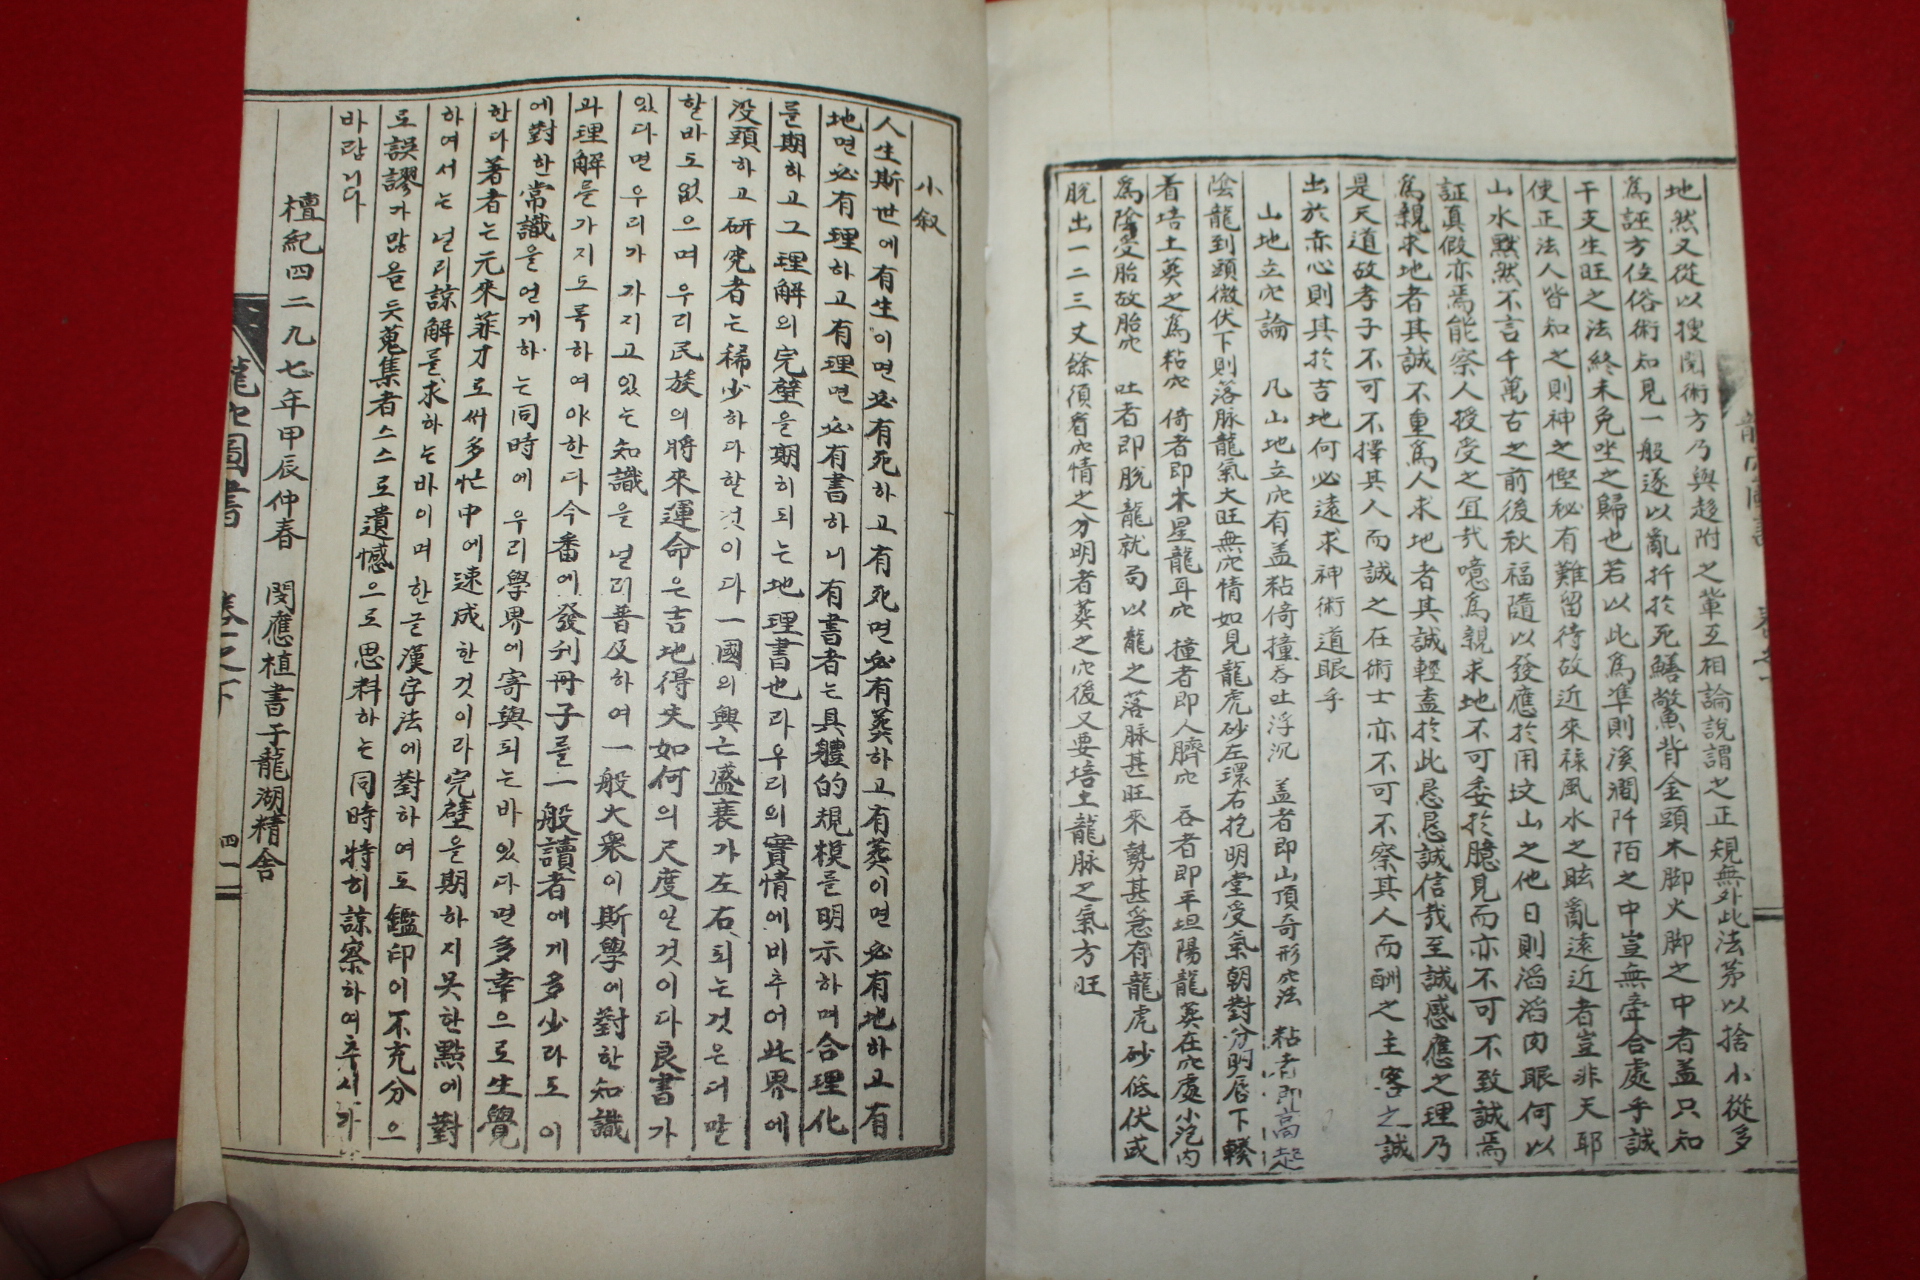 地然又從以搜閱術方乃與趍附之軰互相論說謂之正規無外此法茅以捨小從多
爲誣方伎俗術知見一般遂以亂扦於死鱔敝鱉背金頭木脚火脚之中者盖只知
干支生旺之法終未免坐之歸也若以此爲準則溪澗阡陌之中豈無牽合處乎誠
使正法人皆知之則神之慳秘有難留待故近來祿風水之眩亂遠近者豈非天耶
山水黙然不言千萬古之前後秋福隨以發應於用坟山之他日則滔滔肉眼何以
証眞假亦焉能察人授受之宜㢤噫爲親求地不可委於臆見而亦不可不致誠焉
爲親求地者其誠不重爲人求地者其誠輕盖於此恳恳誠信㢤至誠感應之理乃
是天道故孝子不可不擇其人而誠之在術士亦不可不察其人而酬之主客之誠
出於亦心則其於吉地何必遠求神術道眼乎
山地立穴論 凡山地立穴有盖粘倚撞吞吐浮沉 盖者即山頂奇形穴法 粘者即高起
陰龍到頭微伏下則落脉龍氣大旺無穴情如見龍虎砂左環右抱明堂受氣朝對分明唇下轃
着培土葬之爲粘穴 倚者即木星龍耳穴 撞者即人臍穴 呑者即平坦陽龍葬在穴處小泡内
爲陰受胎故胎穴 吐者即脫龍就局以龍之落脉甚旺來勢甚急有龍虎砂低伏或
脫出一二三丈餘須看穴情之分明者葬之穴後又要培土龍脉之氣方旺
小叙
人生斯世에有生이면必有死하고有死면必有葬하고有葬이면必有地하고有
地면必有理하고有理면必有書하니有書者는具軆的規模를明示하며合理化
를期하고그理解의完璧을期히되는地理書也라우리의實情에비추어此界에
没頭하고研究者는稀少하다할것이다一國의興亡盛衰가左右되는것은더말
할바도없으며우리民族의將來運命은吉地得失如何의尺度인것이다良書가
있다면우리가가지고있는知識을널리普及하여一般大衆이斯學에對한知識
과理解를가지도록하여야한다今番에發刊冊子를一般讀者에게多少라도이
에對한常識을얻게하는同時에우리學界에寄與되는바있다면多幸으로生覺
한다著者는元來菲才로써多忙中에速成한것이라完璧을期하지못한點에對
하여서는널리諒解를求하는바이며한글漢字法에對하여도鑑印이不充分으
로誤謬가많을듯蒐集者스스로遺憾으로思料하는同時特히諒察하여주시기
바랍니다
檀紀四二九七年甲辰仲春 閔應植書于龍湖精舍
龍穴圖書 卷之下 四一